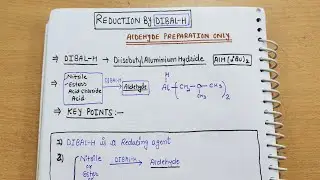 REDUCTION BY DIBAL-H
ALDEHYDE PREPARATION ONLY
⇒ DIBAL-H → Diisobutyl Aluminium Hydride AlH(iBu)2
⇒ Nitrile
Esters
Acid Chloride
Acid
DIBAL-H
→ Aldehyde
H
Al (CH2-C-CH3)2
CH3
⇒ KEY POINTS :-
1) DIBAL-H is a Reducing agent
2) Nitrile DIBAL-H → Aldehyde
or
Ester